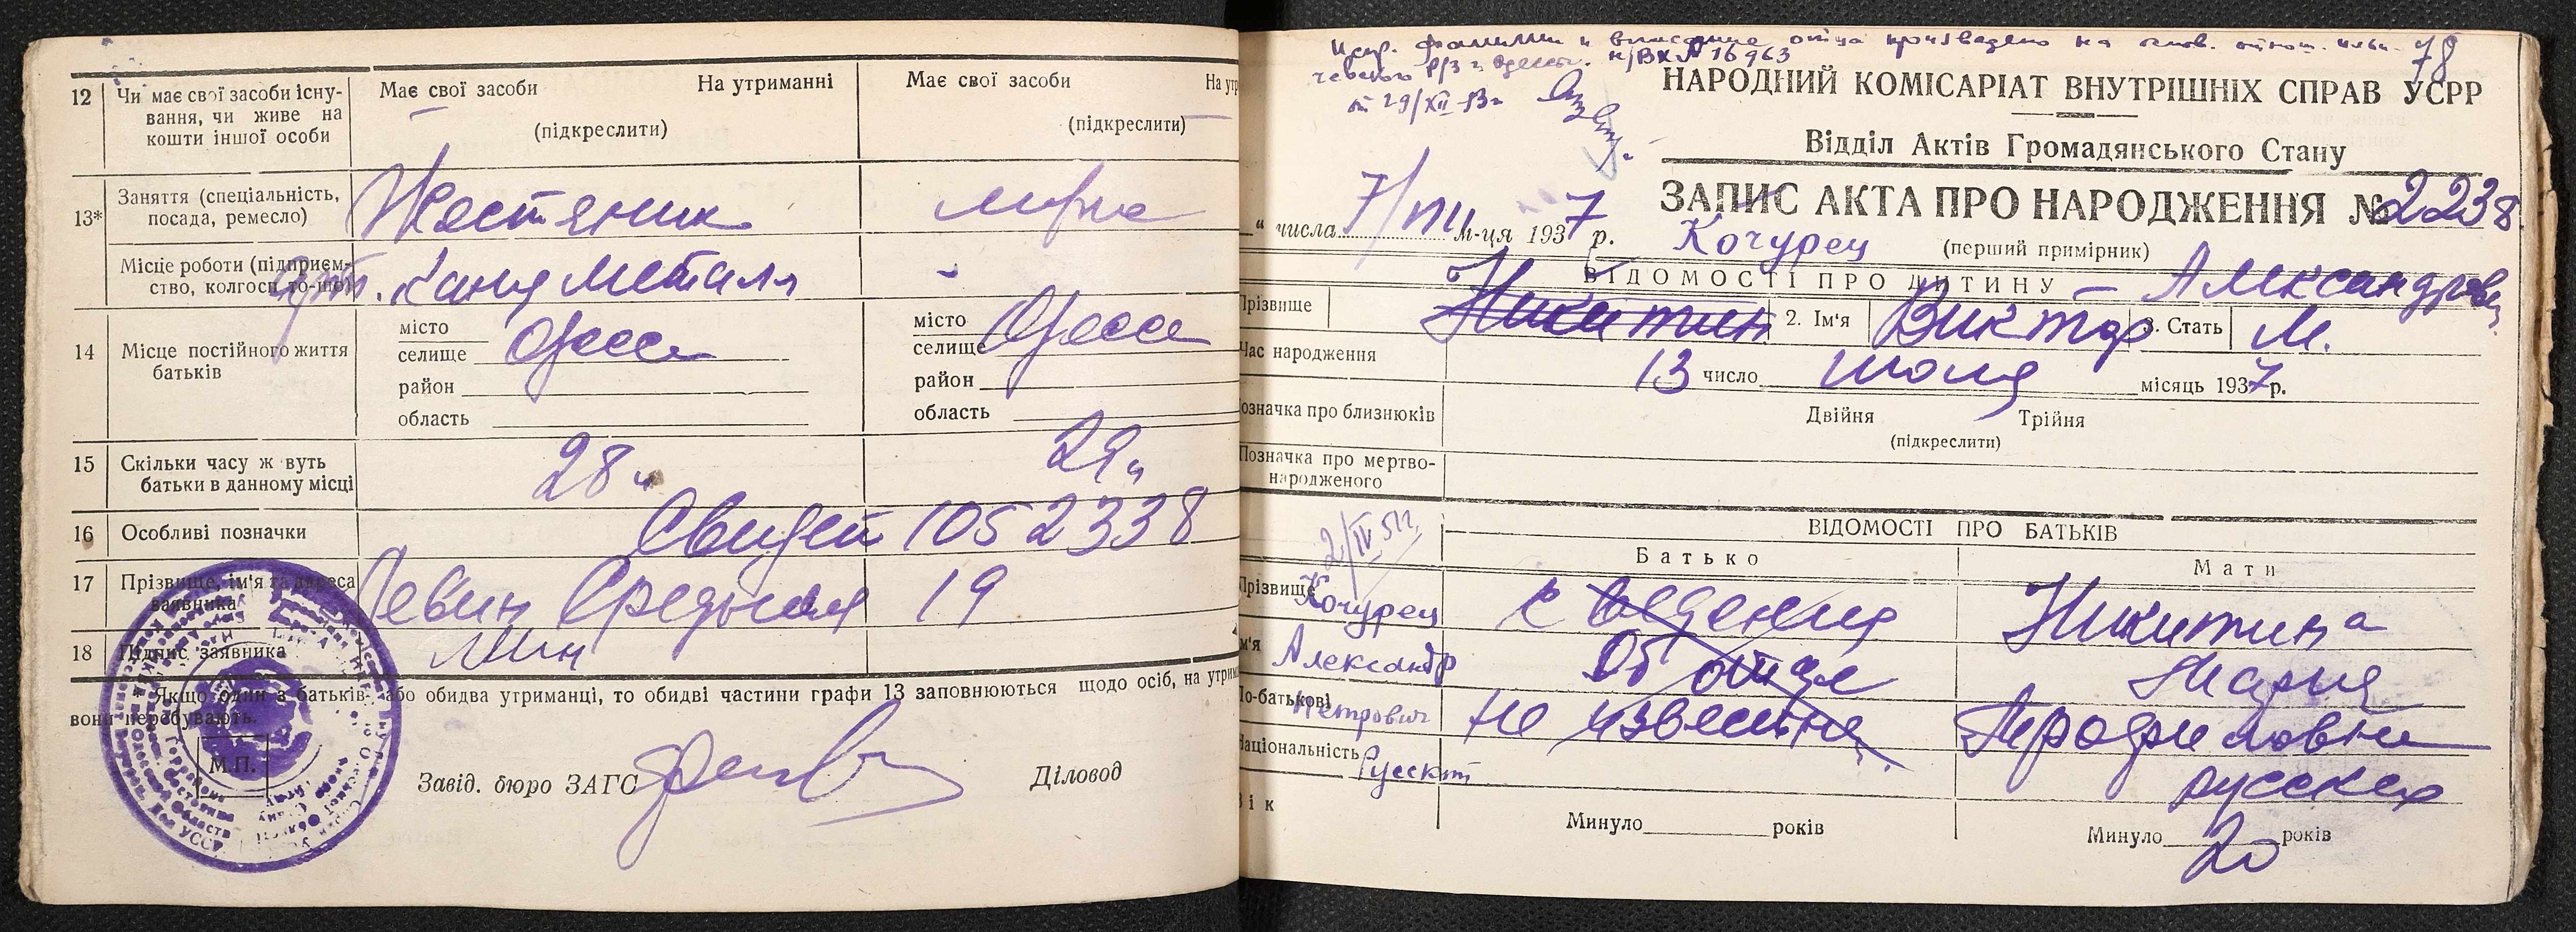 12 Чи має свої засоби існу-
вання, чи живе на
кошти іншої особи
Має свої засоби На утриманні
(підкреслити)
Має свої засоби На утр
(підкреслити)
13* Заняття (спеціальність,
посада, ремесло)
Жестяник
Місце роботи (підприєм-
ство, колгосп то-що)
14 Місце постійного життя
батьків
місто
селище Одесса
район
область
місто
селище Одесса
район
область
15 Скільки часу ж вуть
батьки в данному місці
28 29
16 Особливі позначки
Свидет 1052338
17 Прізвище, ім'я та адреса
заявника
Левин Средняя 19
18 Підпис заявника
Якщо один з батьків або обидва утриманці, то обидві частини графи 13 заповнюються щодо осіб, на утрим
вони перебувають.
М.П.
Завід. бюро ЗАГС Діловод
Испр. фамилии и вписание отца произведено на основ.
н/вх № 16963
от 29/XII
78
НАРОДНИЙ КОМІСАРІАТ ВНУТРІШНІХ СПРАВ УСРР
Відділ Актів Громадянського Стану
ЗАПИС АКТА ПРО НАРОДЖЕННЯ № 2238
" числа 7/VIII м-ця 1937 р. Кочурец (перший примірник)
ВІДОМОСТІ ПРО ДИТИНУ – Александрович
Прізвище Никитин 2. Ім'я Виктор 3. Стать М.
Час народження 13 число июля місяць 1937 р.
Позначка про близнюків Двійня Трійня
(підкреслити)
Позначка про мертво-
народженого
2/IV 51г.
ВІДОМОСТІ ПРО БАТЬКІВ
Батько Мати
Прізвище Кочурец Сведения Никитина
Ім'я Александр Об отце Мария
По-батькові Петрович не известны Трофимовна
Національність Русский русская
Вік Минуло років Минуло 20 років